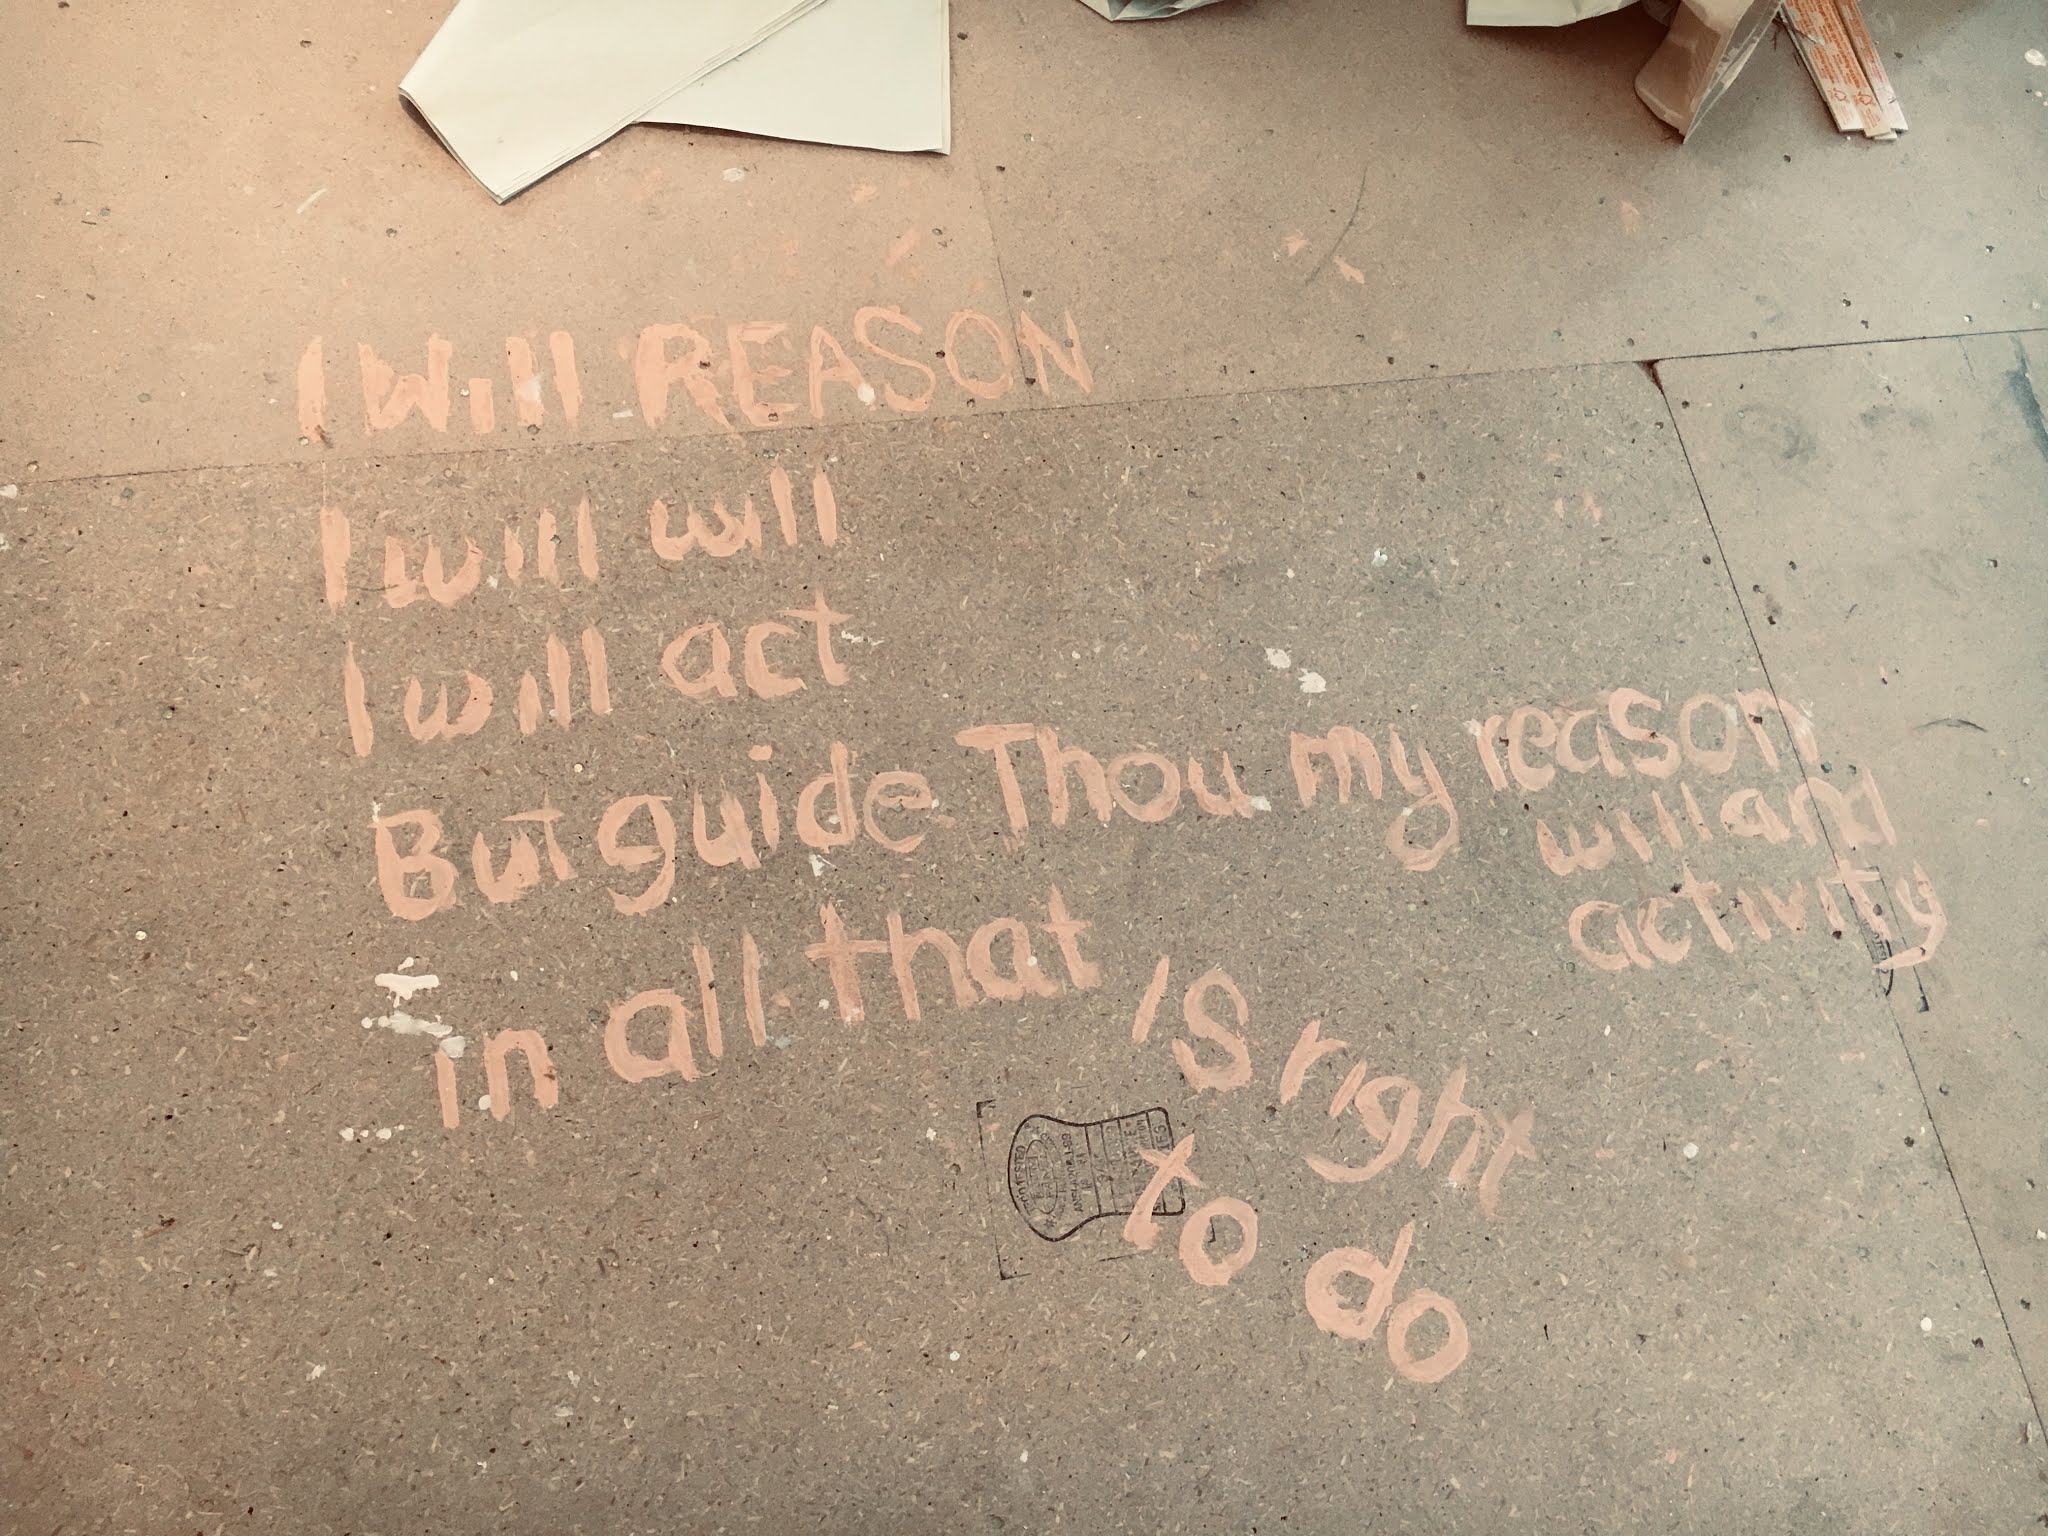 I Will REASON
I will will
I will act
But guide Thou my reason
will and
activity
in all that
is right
to do